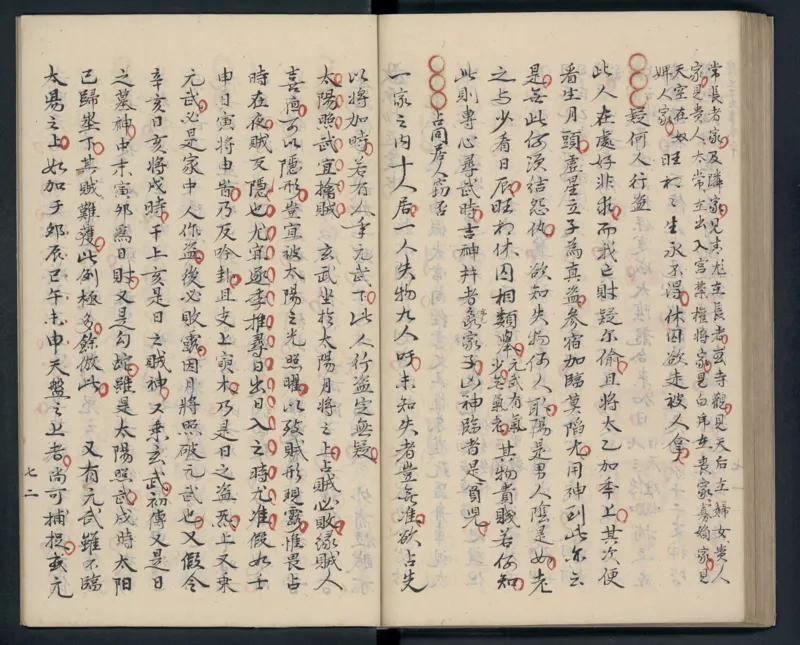 常長者家及隣家見青尨主長者或寺觀見天后主婦女貴人
家見貴人太常立出入宮禁權將家見白虎主喪家寡婦家見
天空在奴
婢人家旺相主生永不得休囚欲走被人拿
疑何人行盜
此人在處好非求而我亡財疑尒偷且將太乙加季上其次便
看生月頭虛星立子為真盜參宿加臨莫陷尤用神到此尒云
是每此仔須結怨仇欲知失物何人取陽是男人陰是女老
之与少看日辰旺相休囚相類舉元武有氣少若氣老其物貴賤若何知
此則專心尋武時吉神并者豪家子凶神臨者是貧兒
占同房人竊否
一家之内十人居一人失物九人吁未知失者豈無准欲占先
以將加時若有人年元武下此人行盜定無疑
太陽照武宜擒賊 玄武坐於太陽月將之上占賊必敗緣賊人
喜陰可以隱形豈宜被太陽之光照曜以致賊形現露惟畏占
時在夜賊反隱也尤宜逐季推尋日出日入之時尤准假如壬
申日寅將申時乃反吟卦且支上寅木乃是日之盜炁上又乘
元武必是家中人作盜後必敗露因月將照破元武也又假令
辛亥日亥將戌時干上亥是日之賊神又乘玄武初傳又是日
之墓神中末寅卯為日財又是勾蛇雖是太陽照武戌時太陽
已歸坐下其賊難獲此例極多餘倣此 又有元武雖不臨
太陽之上如加于卯辰巳午未申天盤之上者尚可捕捉或元
七二